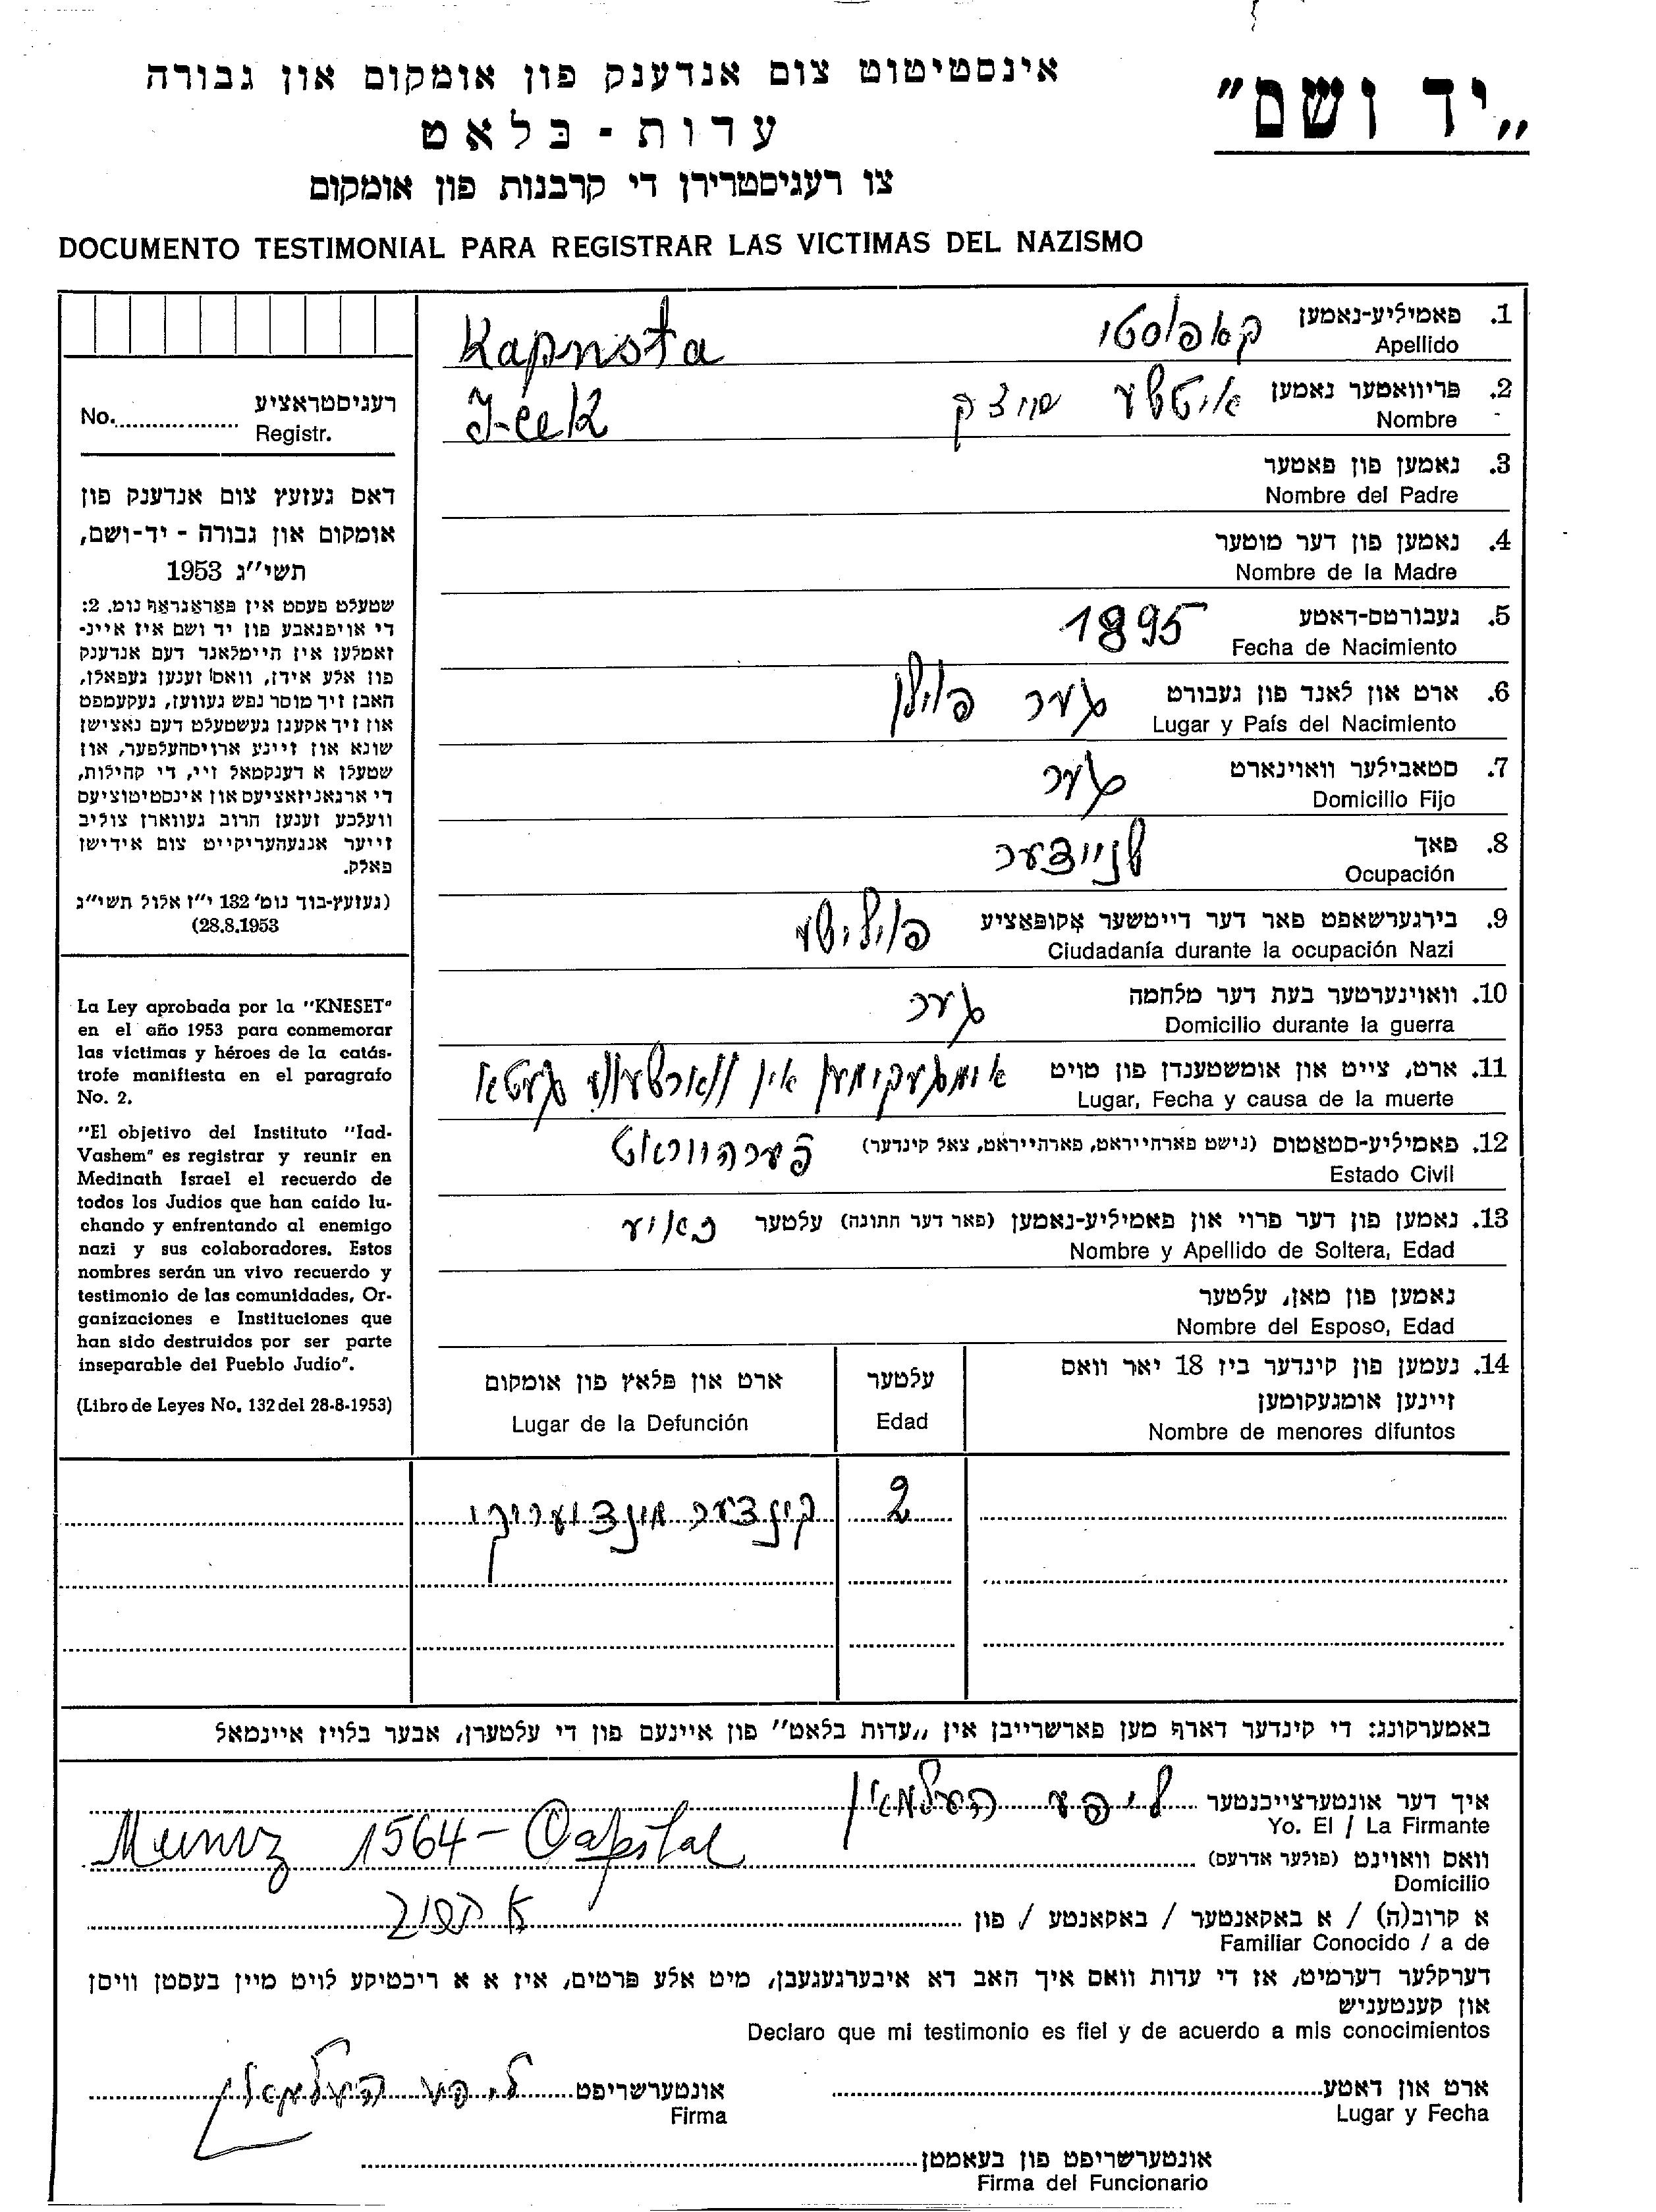 „יד ושם"
אינסטיטוט צום אנדענק פון אומקום און גבורה
עדות - בלאט
צו רעגיסטרירן די קרבנות פון אומקום
DOCUMENTO TESTIMONIAL PARA REGISTRAR LAS VICTIMAS DEL NAZISMO
רעגיסטראציע
No. Registr.
דאס געזעץ צום אנדענק פון
אומקום און גבורה - יד-ושם,
תשי"ג 1953
שטעלט פעסט אין פאראגראף נומ. 2:
די אויפגאבע פון יד ושם איז איינ-
זאמלען אין היימלאנד דעם אנדענק
פון אלע אידן, וואס זענען געפאלן,
האבן זיך מוסר נפש געווען, געקעמפט
און זיך אקעגן געשטעלט דעם נאצישן
שונא און זיינע ארויסהעלפער, און
שטעלן א דענקמאל זיי, די קהילות,
די ארגאניזאציעס און אינסטיטוציעס
וועלכע זענען חרוב געווארן צוליב
זייער אנגעהעריקייט צום אידישן
פאלק.
(געזעץ-בוך נומ' 132 י"ז אלול תשי"ג
28.8.1953)
La Ley aprobada por la "KNESET"
en el año 1953 para conmemorar
las victimas y héroes de la catás-
trofe manifiesta en el paragrafo
No. 2.
"El objetivo del Instituto "Iad-
Vashem" es registrar y reunir en
Medinath Israel el recuerdo de
todos los Judios que han caído lu-
chando y enfrentando al enemigo
nazi y sus colaboradores. Estos
nombres serán un vivo recuerdo y
testimonio de las comunidades, Or-
ganizaciones e Instituciones que
han sido destruidos por ser parte
inseparable del Pueblo Judío".
(Libro de Leyes No. 132 del 28-8-1953)
1. פאמיליע-נאמען קאפוסטי
Apellido Kapusta
2. פריוואטער נאמען איטשע
Nombre
3. נאמען פון פאטער
Nombre del Padre
4. נאמען פון דער מוטער
Nombre de la Madre
5. געבורטס-דאטע 1895
Fecha de Nacimiento
6. ארט און לאנד פון געבורט גער פוילן
Lugar y País del Nacimiento
7. סטאבילער וואוינארט גער
Domicilio Fijo
8. פאך שניידער
Ocupación
9. בירגערשאפט פאר דער דייטשער אקופאציע פוילישע
Ciudadanía durante la ocupación Nazi
10. וואוינערטער בעת דער מלחמה גער
Domicilio durante la guerra
11. ארט, צייט און אומשטענדן פון טויט אומגעקומען אין ווארשעווע געטא
Lugar, Fecha y causa de la muerte
12. פאמיליע-סטאטוס (נישט פארהייראט, פארהייראט, צאל קינדער)
Estado Civil
13. נאמען פון דער פרוי און פאמיליע-נאמען (פאר דער חתונה) עלטער
Nombre y Apellido de Soltera, Edad
נאמען פון מאן, עלטער
Nombre del Esposo, Edad
14. נעמען פון קינדער ביז 18 יאר וואס
זיינען אומגעקומען
Nombre de menores difuntos
עלטער
Edad
ארט און פלאץ פון אומקום
Lugar de la Defunción
2 קינדער
באמערקונג: די קינדער דארף מען פארשרייבן אין „עדות בלאט" פון איינעם פון די עלטערן, אבער בלויז איינמאל
איך דער אונטערצייכנטער ליפע העלמאן
Yo. El / La Firmante
וואס וואוינט (פולער אדרעס) Muniz 1564 - Capital
Domicilio
א קרוב(ה) / א באקאנטער / באקאנטע / פון
Familiar Conocido / a de
דערקלער דערמיט, אז די עדות וואס איך האב דא איבערגעגעבן, מיט אלע פרטים, איז א א ריכטיקע לויט מיין בעסטן וויסן
און קענטעניש
Declaro que mi testimonio es fiel y de acuerdo a mis conocimientos
ארט און דאטע
Lugar y Fecha
אונטערשריפט ליפע העלמאן
Firma
אונטערשריפט פון בעאמטן
Firma del Funcionario